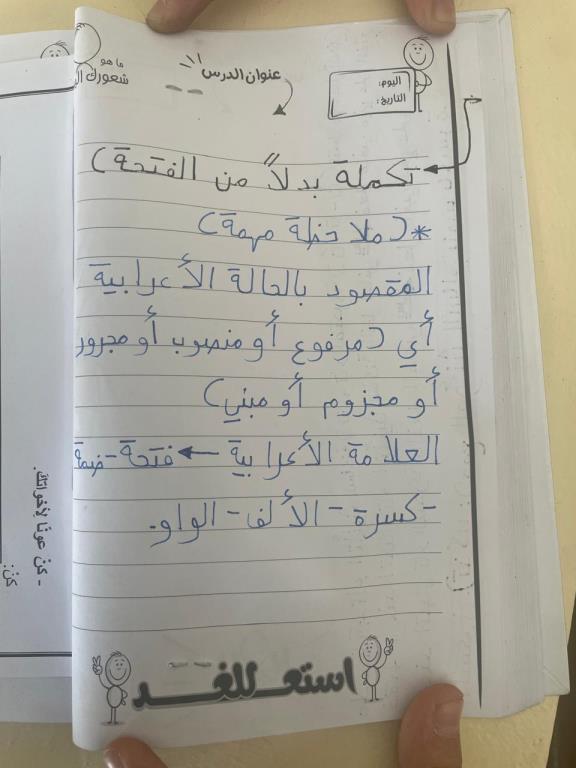 ما هو
شعورك ال
عنوان الدرس
اليوم:
التاريخ:
تكملة بدلاً من الفتحة)
*(ملاحظة مهمة)
المقصود بالحالة الأعرابية
أي (مرفوع أو منصوب أو مجرور
أو مجزوم أو مبني)
العلامة الأعرابية ← فتحة - ضمة
- كسرة - الألف - الواو.
استعـــد للغـــد
- كن عونًا لأخواتك.
كن: